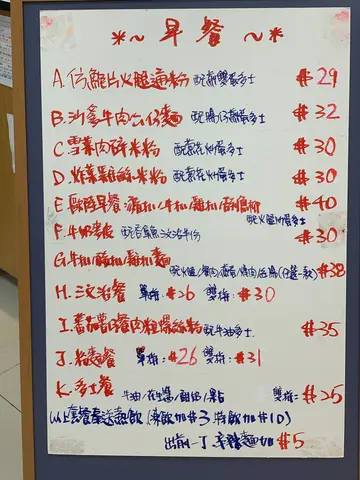 ※~ 早餐 ~※
A. 仿鮑片火腿通粉 配煎雙蛋多士 #29
B. 沙爹牛肉公仔麵 配腸仔煎蛋多士 #32
C. 雪菜肉碎米粉 配蔥花炒蛋多士 #30
D. 炸菜雞絲米粉 配蔥花炒蛋多士 #30
E. 早餐: 豬扒/牛扒/雞扒/ #40
配火腿炒蛋多士
F. 牛奶麥皮 配吞拿魚三文治半份 #30
G. 牛扒/豬扒/雞扒麵
配火腿/餐肉/煎蛋/ /腸(任選一款) #38
H. 三文治餐 單拼: #26 雙拼: #30
I. 蕃茄薯仔餐肉粒螺絲粉 配牛油多士 #35
J. 粉麵餐 單拼: #26 雙拼: #31
K. 多士餐 牛油/花生醬/ /果占 雙拼: #25
以上套餐奉送熱飲 (凍飲加#3 特飲加#10)
出前一丁.辛辣麵加 #5